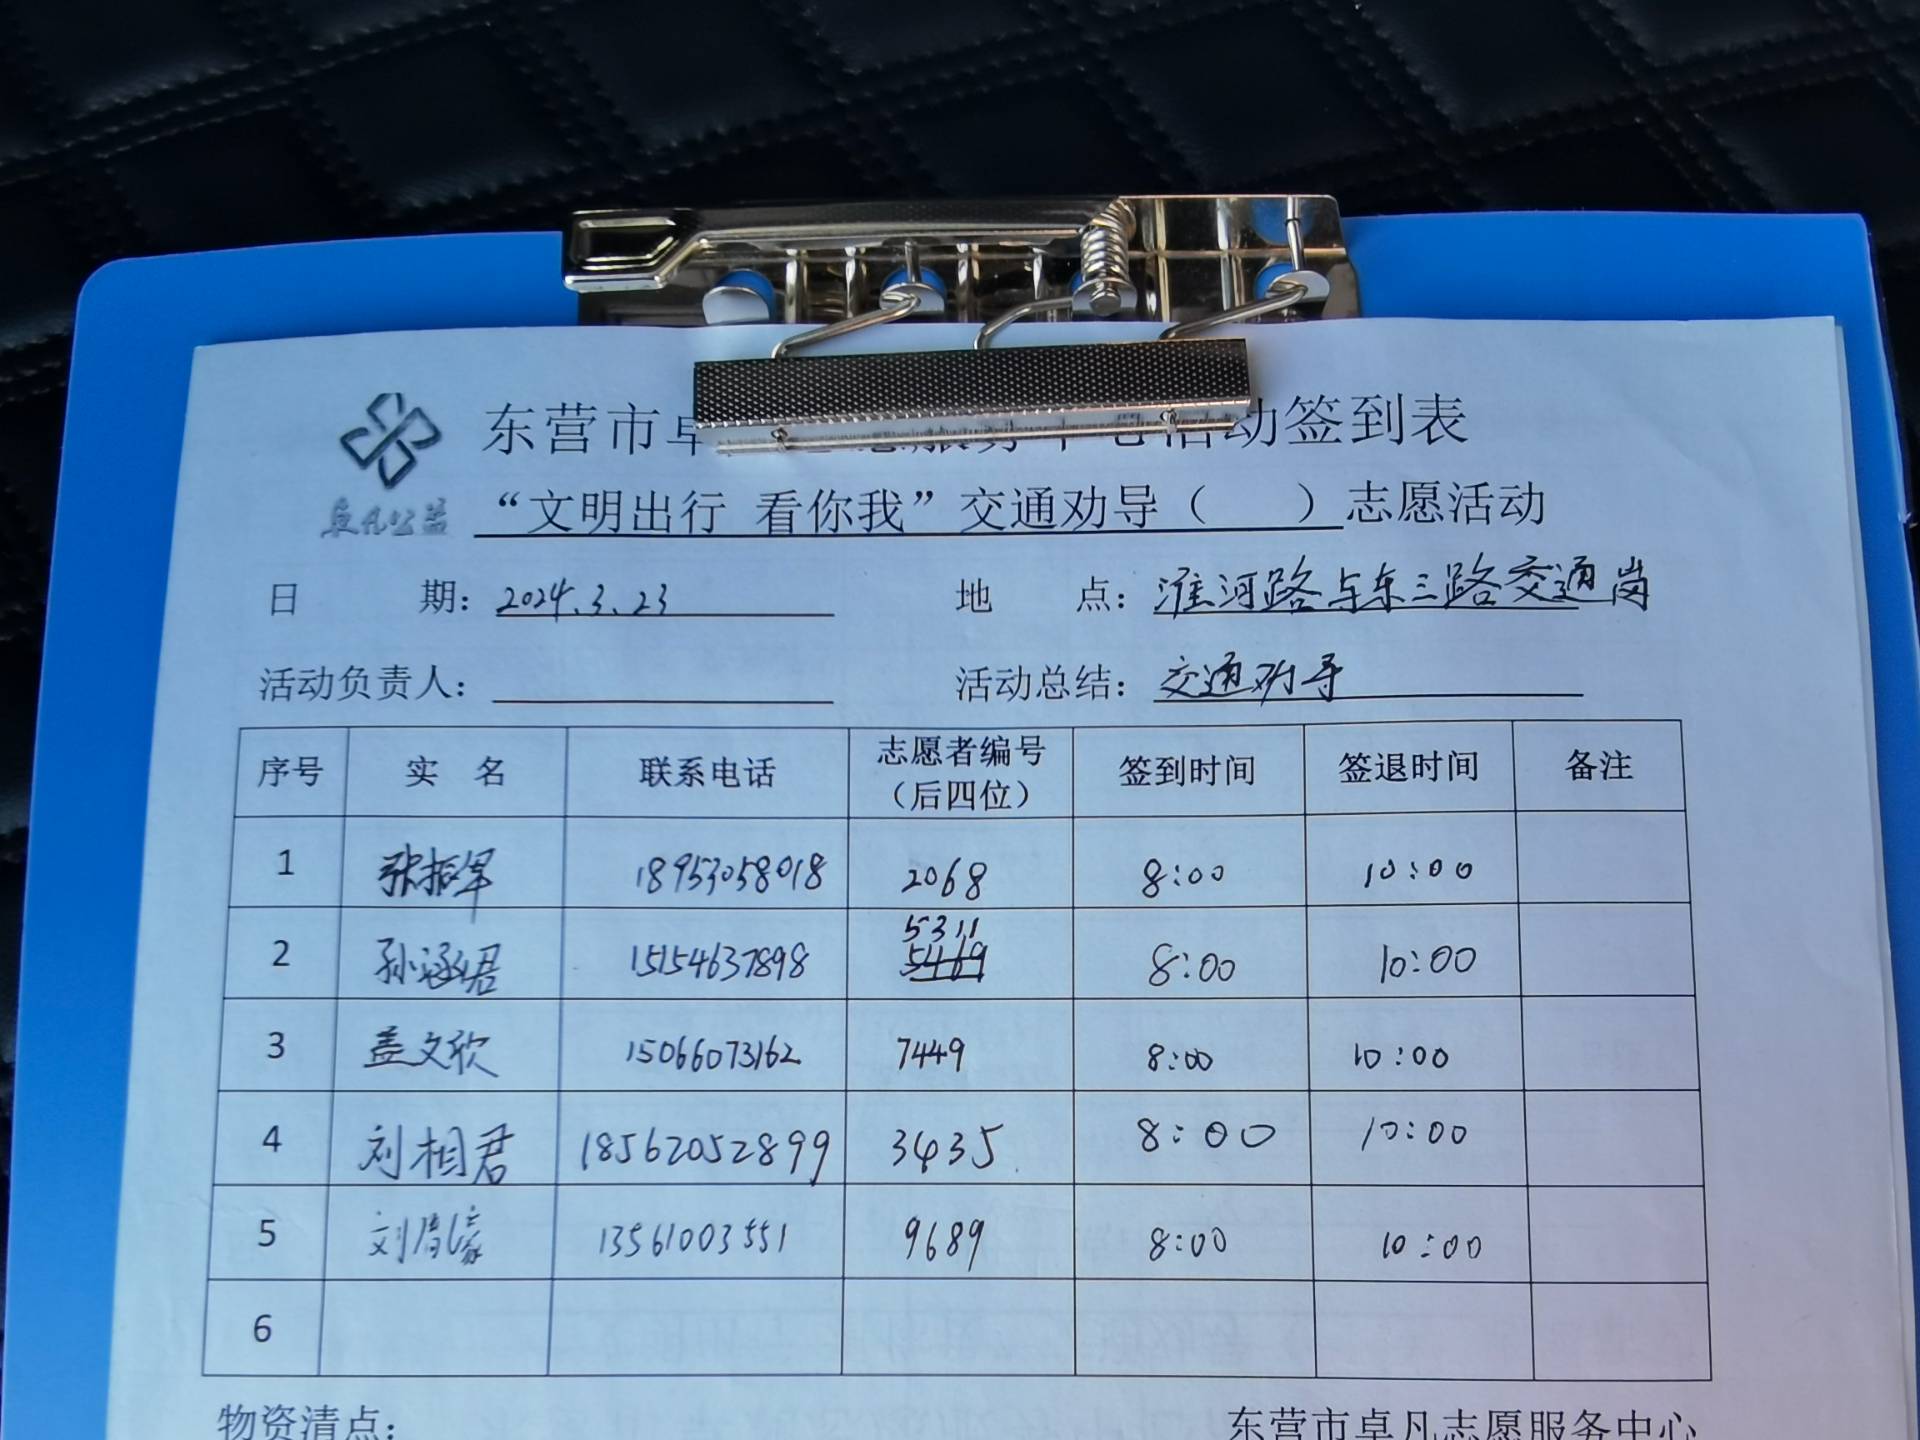 东营市卓 活动签到表
卓凡公益
“文明出行 看你我”交通劝导（ ）志愿活动
日 期：2024.3.23 地 点：淮河路与东三路交通岗
活动负责人： 活动总结：交通劝导
序号 实 名 联系电话 志愿者编号（后四位） 签到时间 签退时间 备注
1 张振军 18953058018 2068 8:00 10:00
5311
2 孙涵君 15154637898 5469 8:00 10:00
3 盖文欣 15066073162 7449 8:00 10:00
4 刘相君 18562052899 3435 8:00 10:00
5 刘 13561003551 9689 8:00 10:00
6
物资清点： 东营市卓凡志愿服务中心